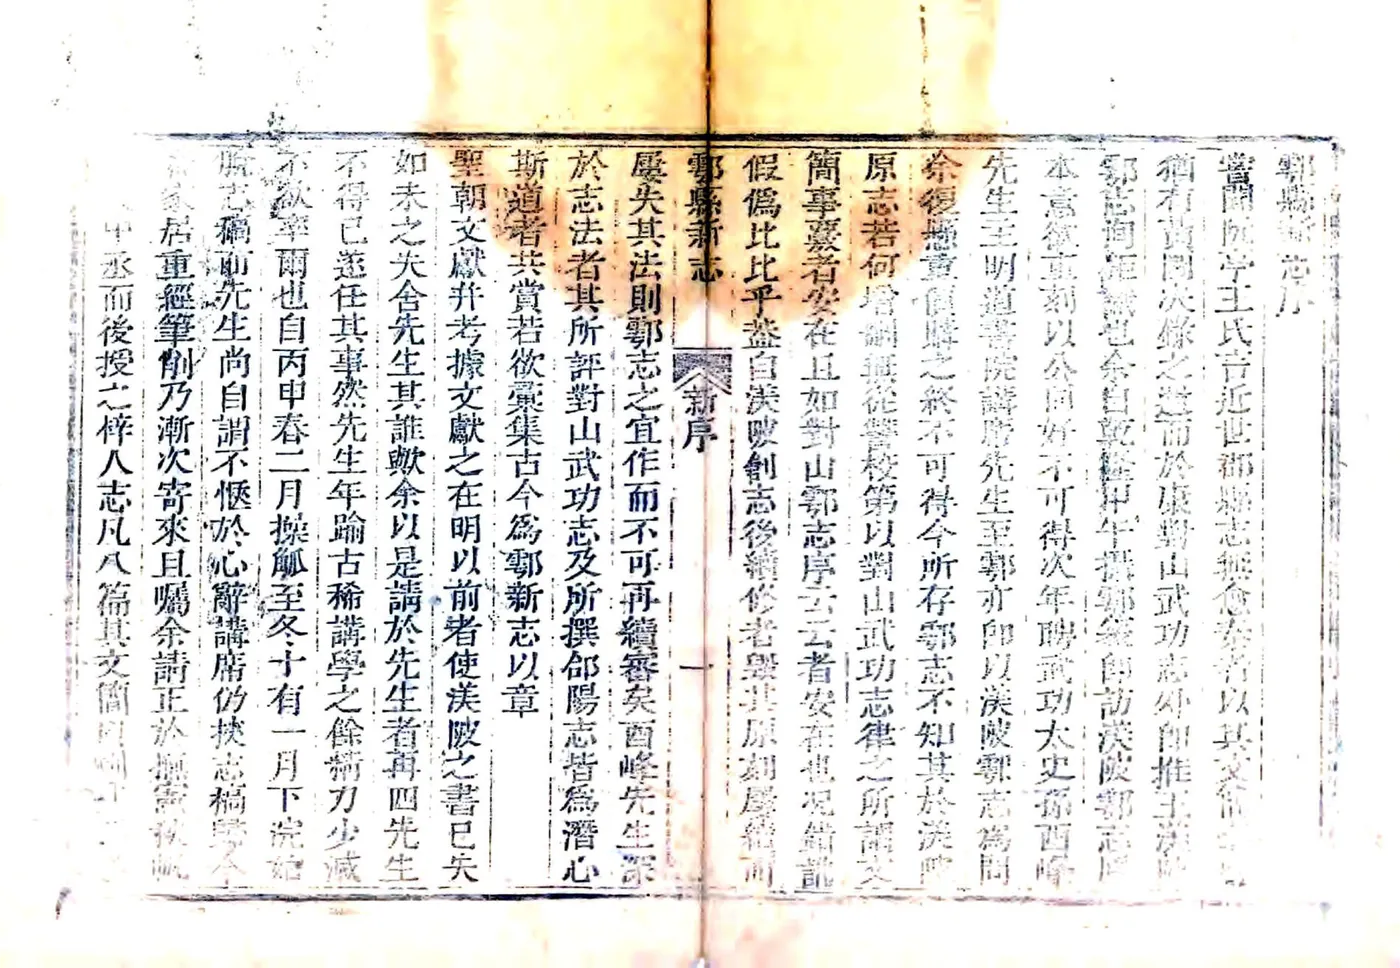 鄠縣新志序
嘗聞阮亭王氏言近世郡縣志無愈秦者以其文
猶有黃圖決錄之遺而於康對山武功志外即推王渼陂
鄠志洵匪誣也余自乾隆甲午攝鄠篆即訪渼陂鄠志
本意欲重刻以公同好不可得次年聘武功大史孫酉峰
先生主明道書院講席先生至鄠亦即以渼陂鄠志為問
余復懸重價購之終不可得今所存鄠志不知其於渼陂
原志若何增刪無從讐校第以對山武功志律之所謂文
簡事覈者安在且如對山鄠志序云云者安在也况錯訛
假僞比比乎蓋自渼陂創志後續修者毀其原刻屢續而
鄠縣新志 新序 一
屢失其法則鄠志之宜作而不可再續審矣酉峰先生深
於志法者其所評對山武功志及所撰郃陽志皆為潛心
斯道者共賞若欲彙集古今為鄠新志以章
聖朝文獻并考據文獻之在明以前者使渼陂之書已失
如未之失舍先生其誰歟余以是請於先生者再四先生
不得已遂任其事然先生年踰古稀講學之餘精力少減
不欲率爾也自丙申春二月操觚至冬十有一月下浣始
脫志稿而先生尚自謂不愜於心辭講席仍挾志稿歸今
家居重經筆削乃漸次寄來且囑余請正於撫憲
中丞而後授之梓人志凡八篇其文簡